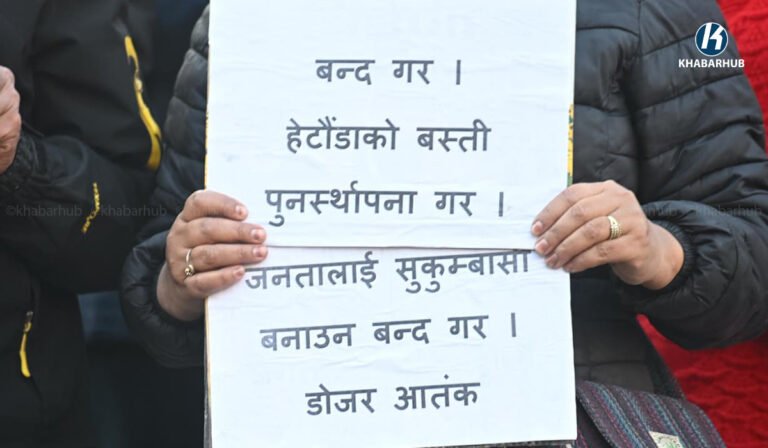 KHABARHUB
बन्द गर ।
हेटौंडाको बस्ती
पुनर्स्थापना गर ।
जनतालाई सुकुम्बासी
बनाउन बन्द गर ।
डोजर आतंक
©khabarhub ©khabarhub